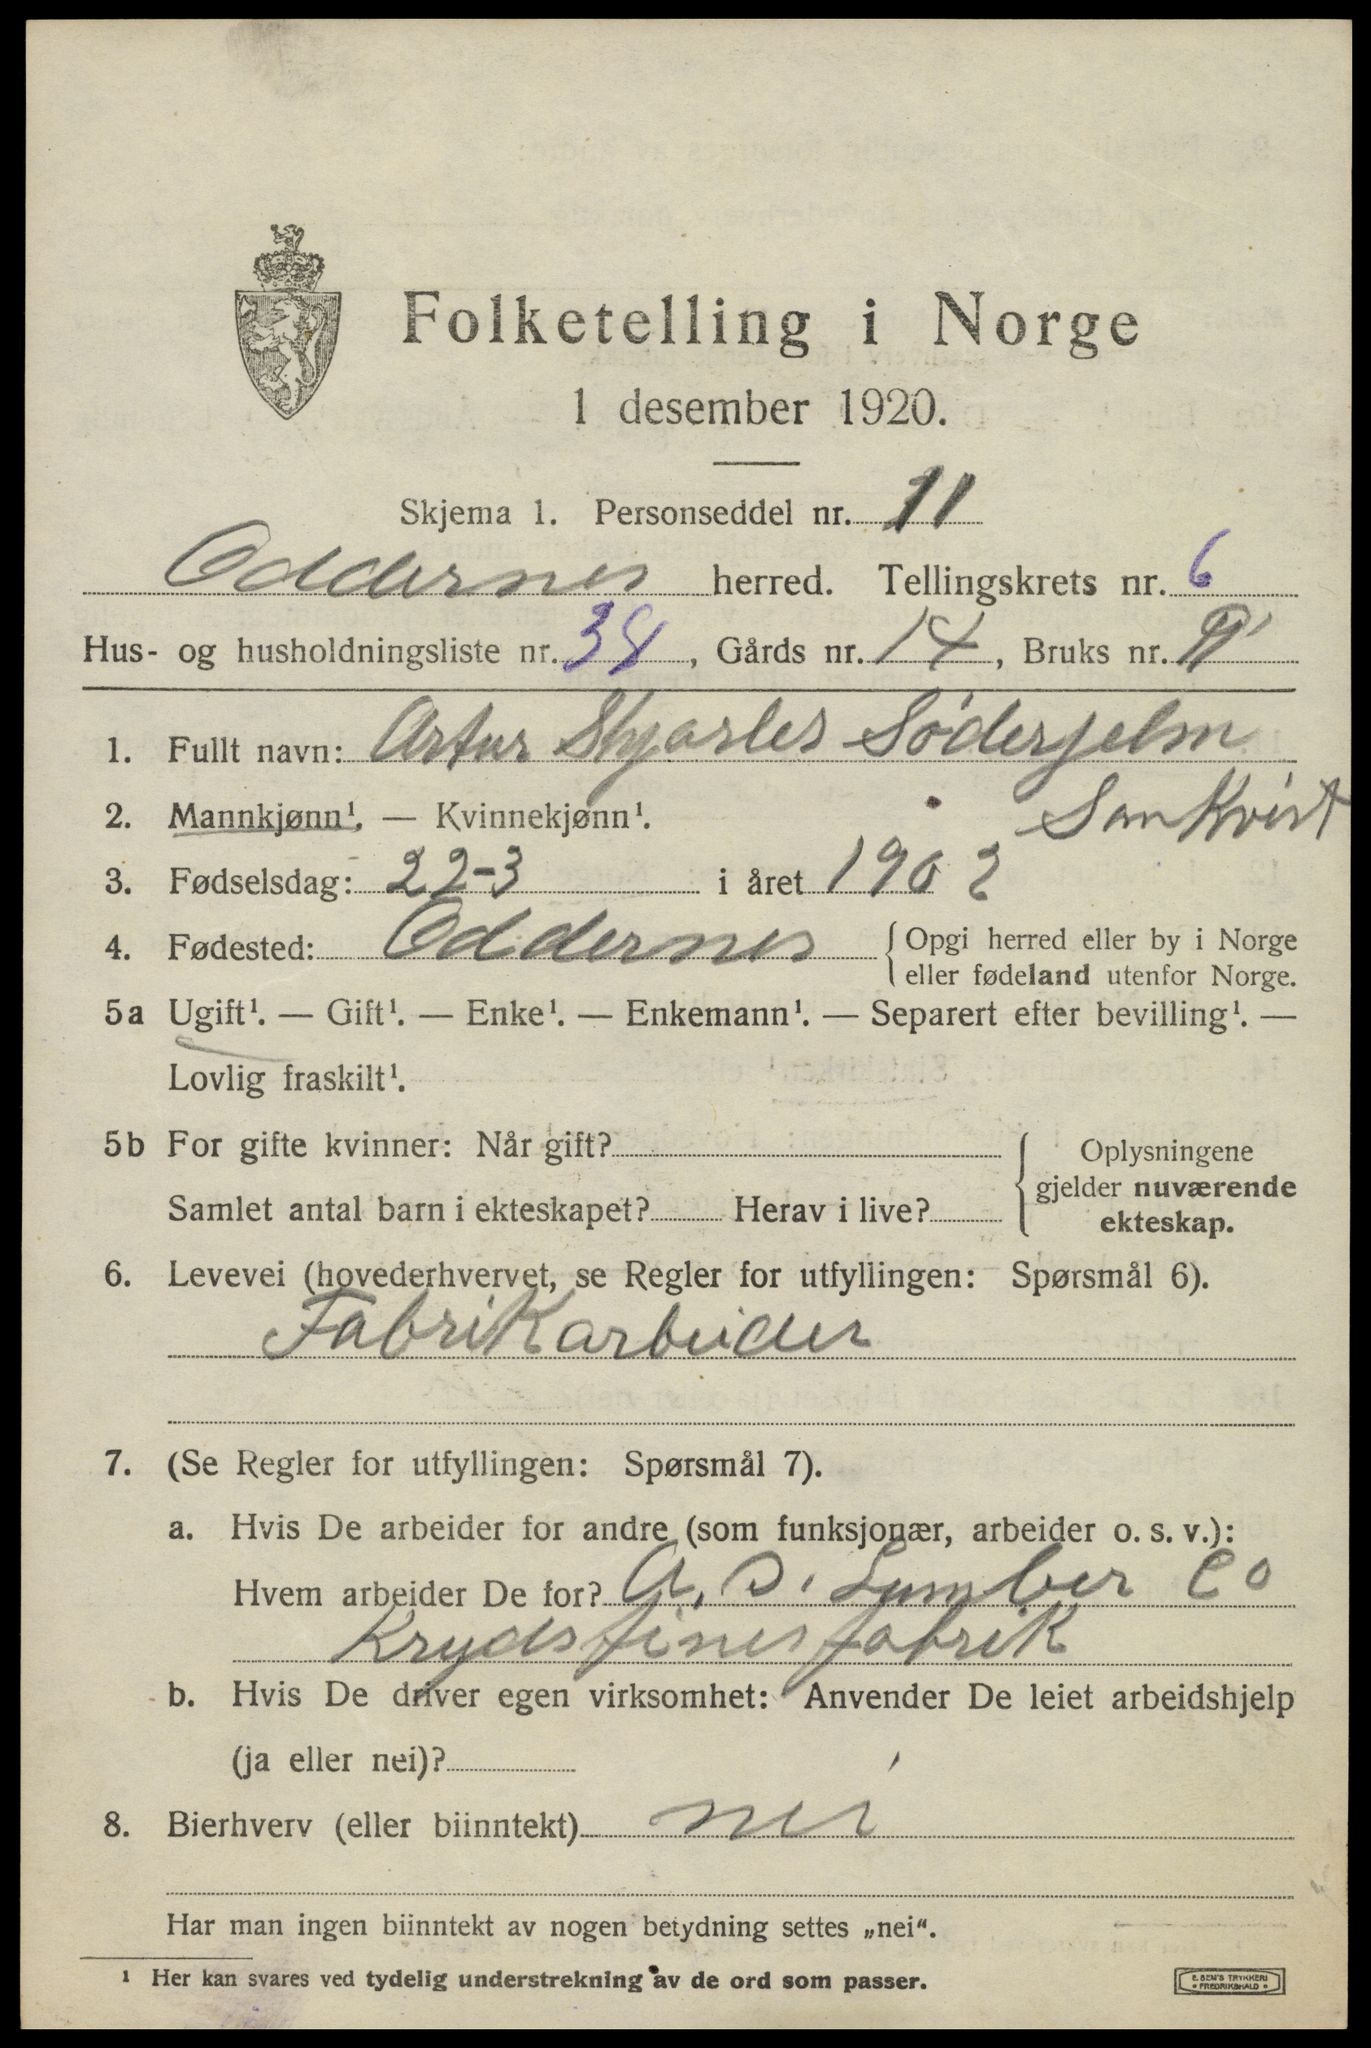 Folketelling i Norge
1 desember 1920.
Skjema 1. Personseddel nr. 11
Oddernes herred. Tellingskrets nr. 6
Hus- og husholdningsliste nr. 38, Gårds nr. 14, Bruks nr.
1. Fullt navn: Artur Skjarles Söderjelm
Sankvist
2. Mannkjønn¹. — Kvinnekjønn¹.
3. Fødselsdag: 22-3 i året 1902
4. Fødested: Oddernes { Opgi herred eller by i Norge
eller fødeland utenfor Norge.
5a Ugift¹. — Gift¹. — Enke¹. — Enkemann¹. — Separert efter bevilling¹. —
Lovlig fraskilt¹.
5b For gifte kvinner: Når gift? { Oplysningene
gjelder nuværende
Samlet antal barn i ekteskapet? Herav i live? ekteskap.
6. Levevei (hovederhvervet, se Regler for utfyllingen: Spørsmål 6).
Fabrikarbeider
7. (Se Regler for utfyllingen: Spørsmål 7).
a. Hvis De arbeider for andre (som funksjonær, arbeider o. s. v.):
Hvem arbeider De for? A. S. Lumber Co
Krydsfinerfabrik
b. Hvis De driver egen virksomhet: Anvender De leiet arbeidshjelp
(ja eller nei)?
8. Bierhverv (eller biinntekt) nei
Har man ingen biinntekt av nogen betydning settes „nei“.
¹ Her kan svares ved tydelig understrekning av de ord som passer.
E. SEM'S TRYKKERI
FREDRIKSHALD